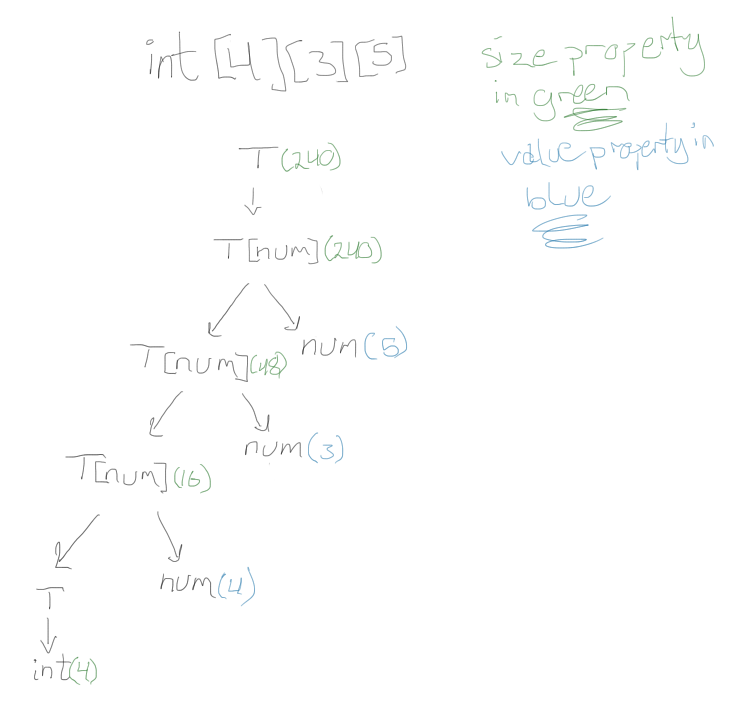 int [4][3][5]
size property
in green
value property in
blue
T (240)
T[num] (240)
T[num] (48) num (5)
T[num] (16) num (3)
T num (4)
int (4)